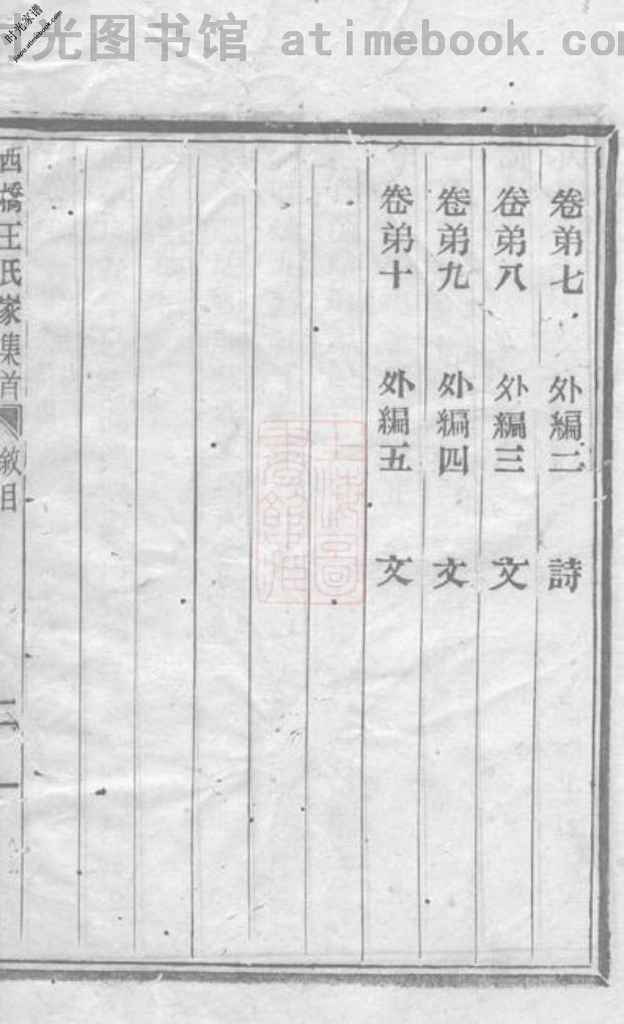 光图书馆 atimebook.co
时光家谱
卷弟七 外編二 詩
卷弟八 外編三 文
卷弟九 外編四 文
卷弟十 外編五 文
西橋王氏家集首 敘目 二